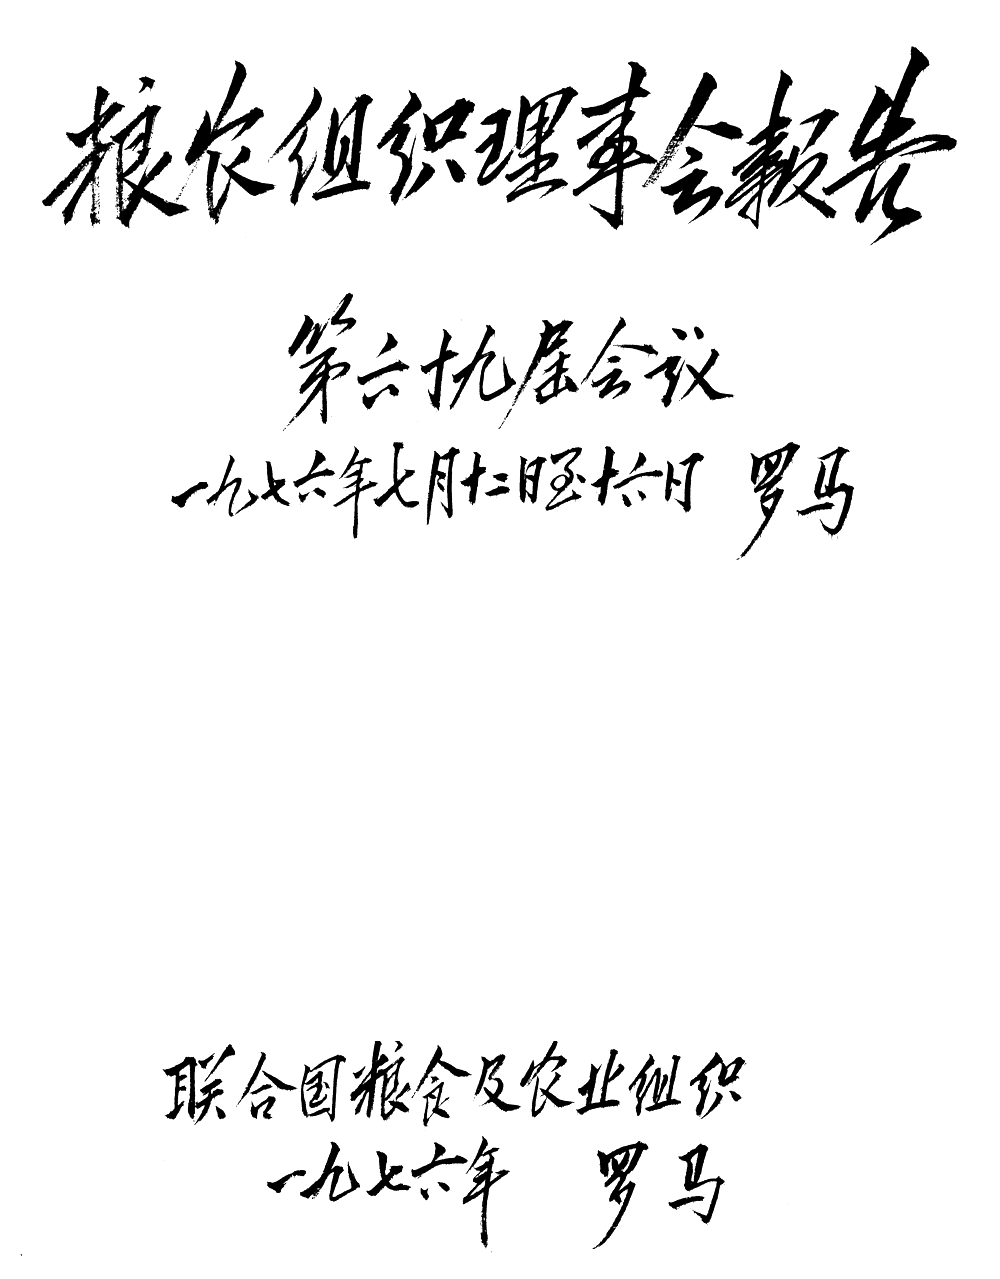 粮农组织理事会報告
第六十九届会议
一九七六年七月十二日至十六日 罗马
联合国粮食及农业组织
一九七六年 罗马